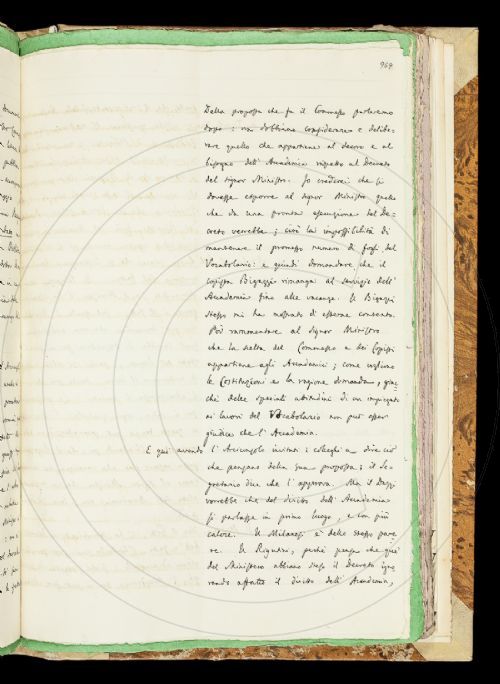 969
Della proposta che fa il Commesso parleremo
dopo: ora dobbiamo considerare e delibe-
rare quello che appartiene al decoro e al
bisogno dell' Accademia rispetto al Decreto
del signor Ministro. Io crederei che si
dovesse esporre al signor Ministro quello
che da una pronta esecuzione del De-
creto verrebbe; cioè la impossibilità di
mantenere il promesso numero di fogli del
Vocabolario: e quindi domandare che il
copista Bigazzi rimanga al servizio dell'
Accademia fino alle vacanze. Il Bigazzi
stesso mi ha mostrato di esserne contento.
Poi rammentare al signor Ministro
che la scelta del Commesso e dei Copisti
appartiene agli Accademici; come vogliono
le Costituzioni e la ragione domanda, giac-
chè delle speciali attitudini di un impiegato
ai lavori del Vocabolario non può esser
giudice che l' Accademia.
E qui avendo l' Arciconsolo invitato i colleghi a dire ciò
che pensano della sua proposta; il Se-
gretario dice che l' approva. Ma il Dazzi
vorrebbe che del diritto dell' Accademia
si parlasse in primo luogo, e con più
calore. Il Milanesi è dello stesso pare-
re. Il Rigutini, perchè pensa che quei
del Ministero abbiano steso il Decreto igno-
rando affatto il diritto dell' Accademia,